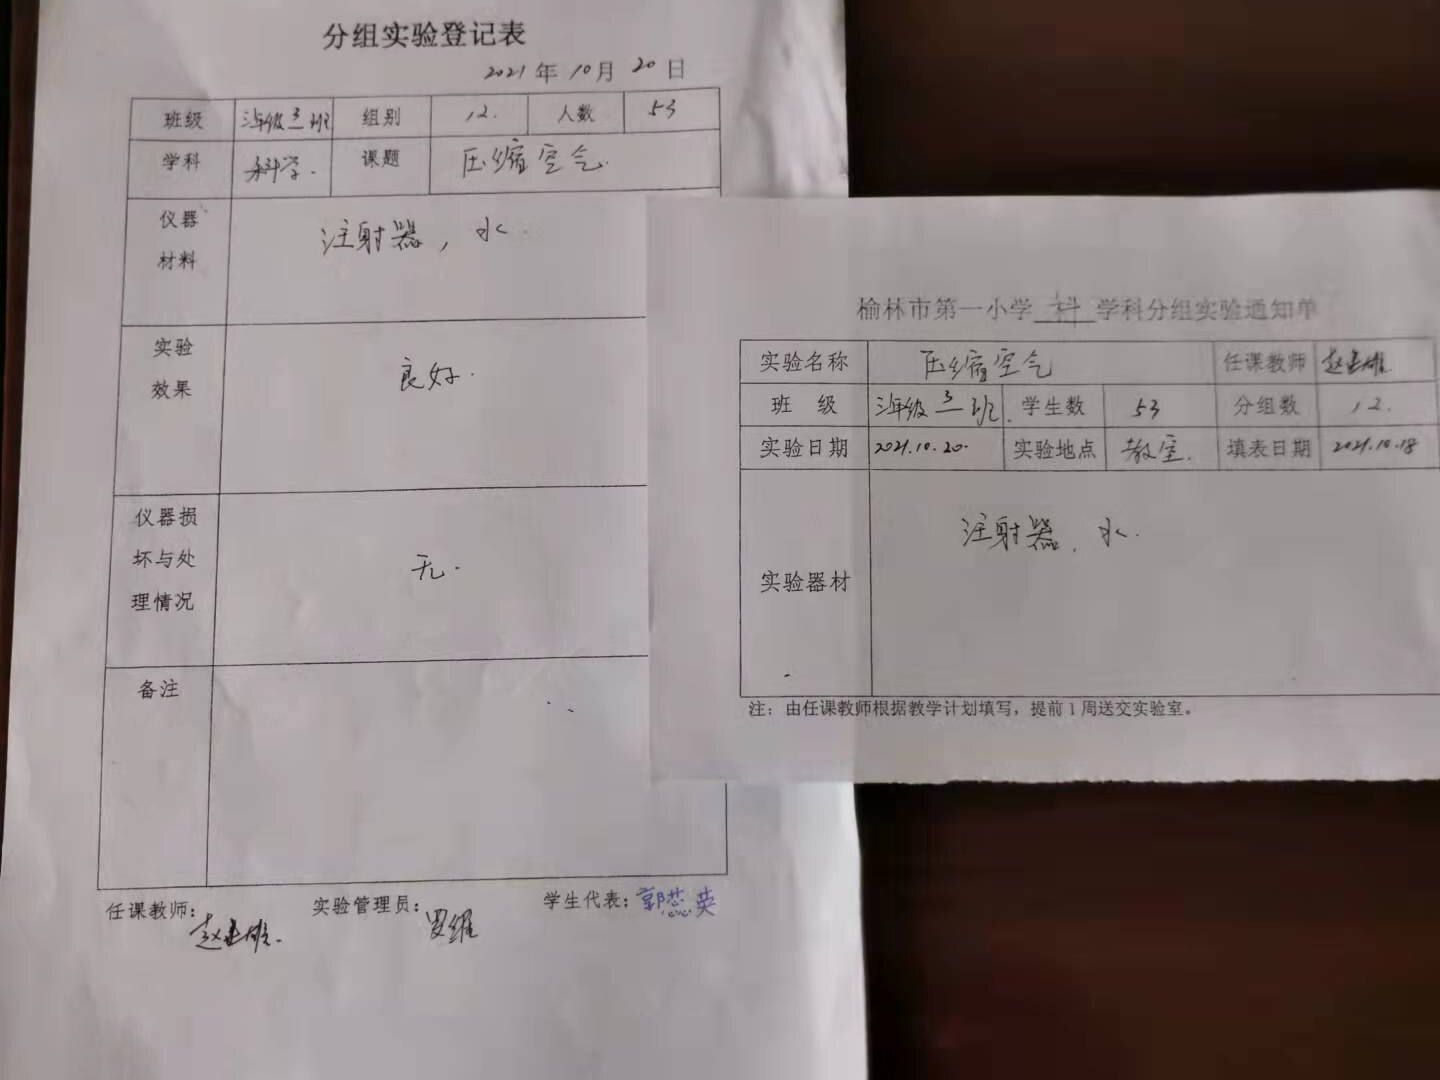 分组实验登记表
2021年10月20日
班级 三年级3班 组别 12. 人数 53
学科 科学. 课题 压缩空气.
仪器 注射器，水.
材料
实验 良好.
效果
仪器损
坏与处 无.
理情况
备注
任课教师： 实验管理员：罗维 学生代表：郭蕊英
榆林市第一小学 科 学科分组实验通知单
实验名称 压缩空气 任课教师
班 级 三年级3班. 学生数 53 分组数 12.
实验日期 2021.10.20. 实验地点 教室. 填表日期 2021.10.18
实验器材 注射器，水.
注：由任课教师根据教学计划填写，提前1周送交实验室。